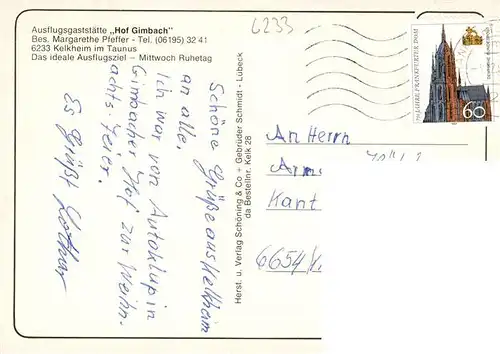 Ausflugsgaststätte "Hof Gimbach"
Bes. Margarethe Pfeffer - Tel. (06195) 32 41
6233 Kelkheim im Taunus
Das ideale Ausflugsziel – Mittwoch Ruhetag
6233
Schöne Grüße aus Kelkheim
an alle.
Ich war von Autoklub in
Gimbacher Hof zur Weihn-
achts-Feier.
Es grüßt Lothar
Herst. u. Verlag Schöning & Co + Gebrüder Schmidt - Lübeck
da Bestellnr. Kelk 28
750 JAHRE FRANKFURTER DOM
DEUTSCHE BUNDESPOST
60
An Herrn
Kant
6654